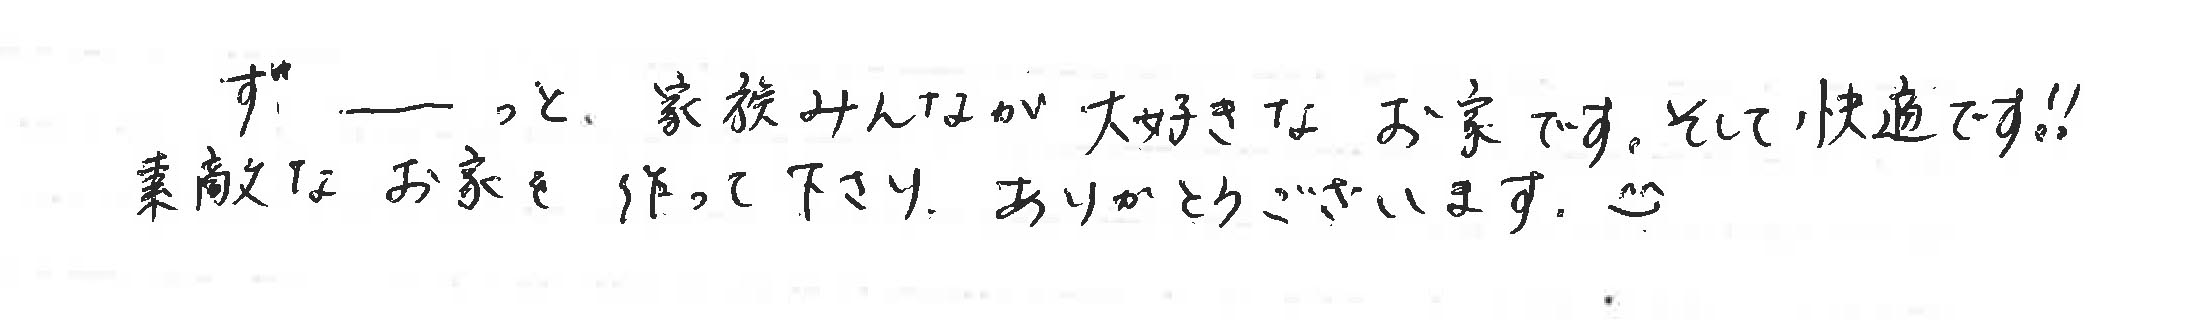 ず――っと、家族みんなが大好きなお家です。そして、快適です!!
素敵なお家を作って下さり、ありがとうございます。